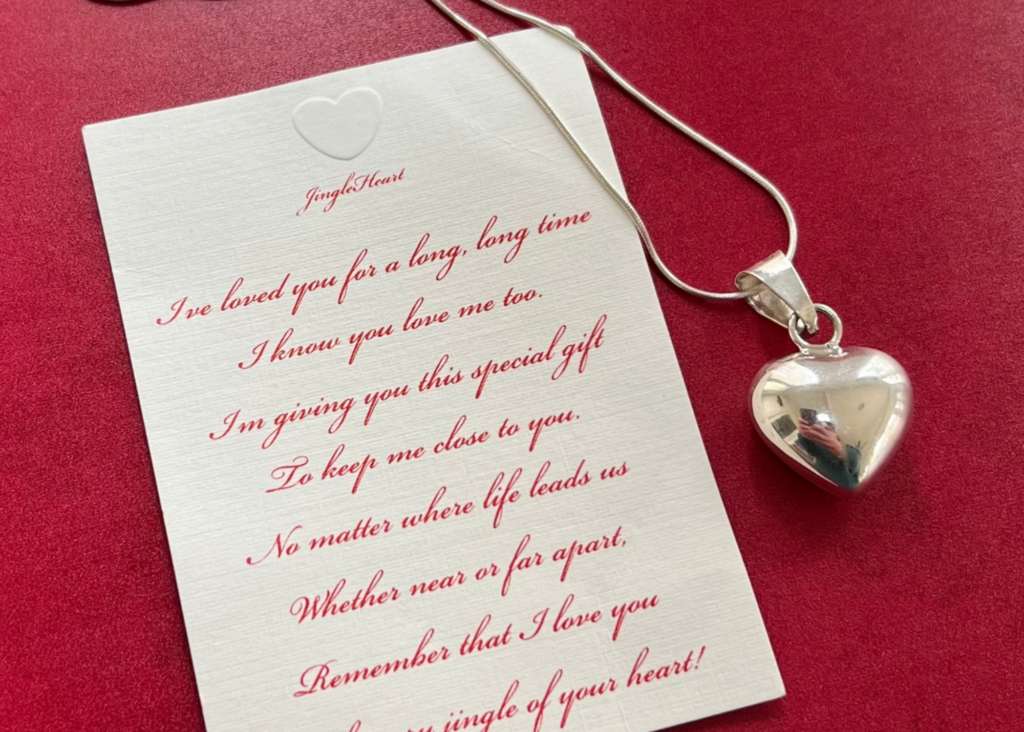 JingleHeart
I've loved you for a long, long time
I know you love me too.
I'm giving you this special gift
To keep me close to you.
No matter where life leads us
Whether near or far apart,
Remember that I love you
jingle of your heart!